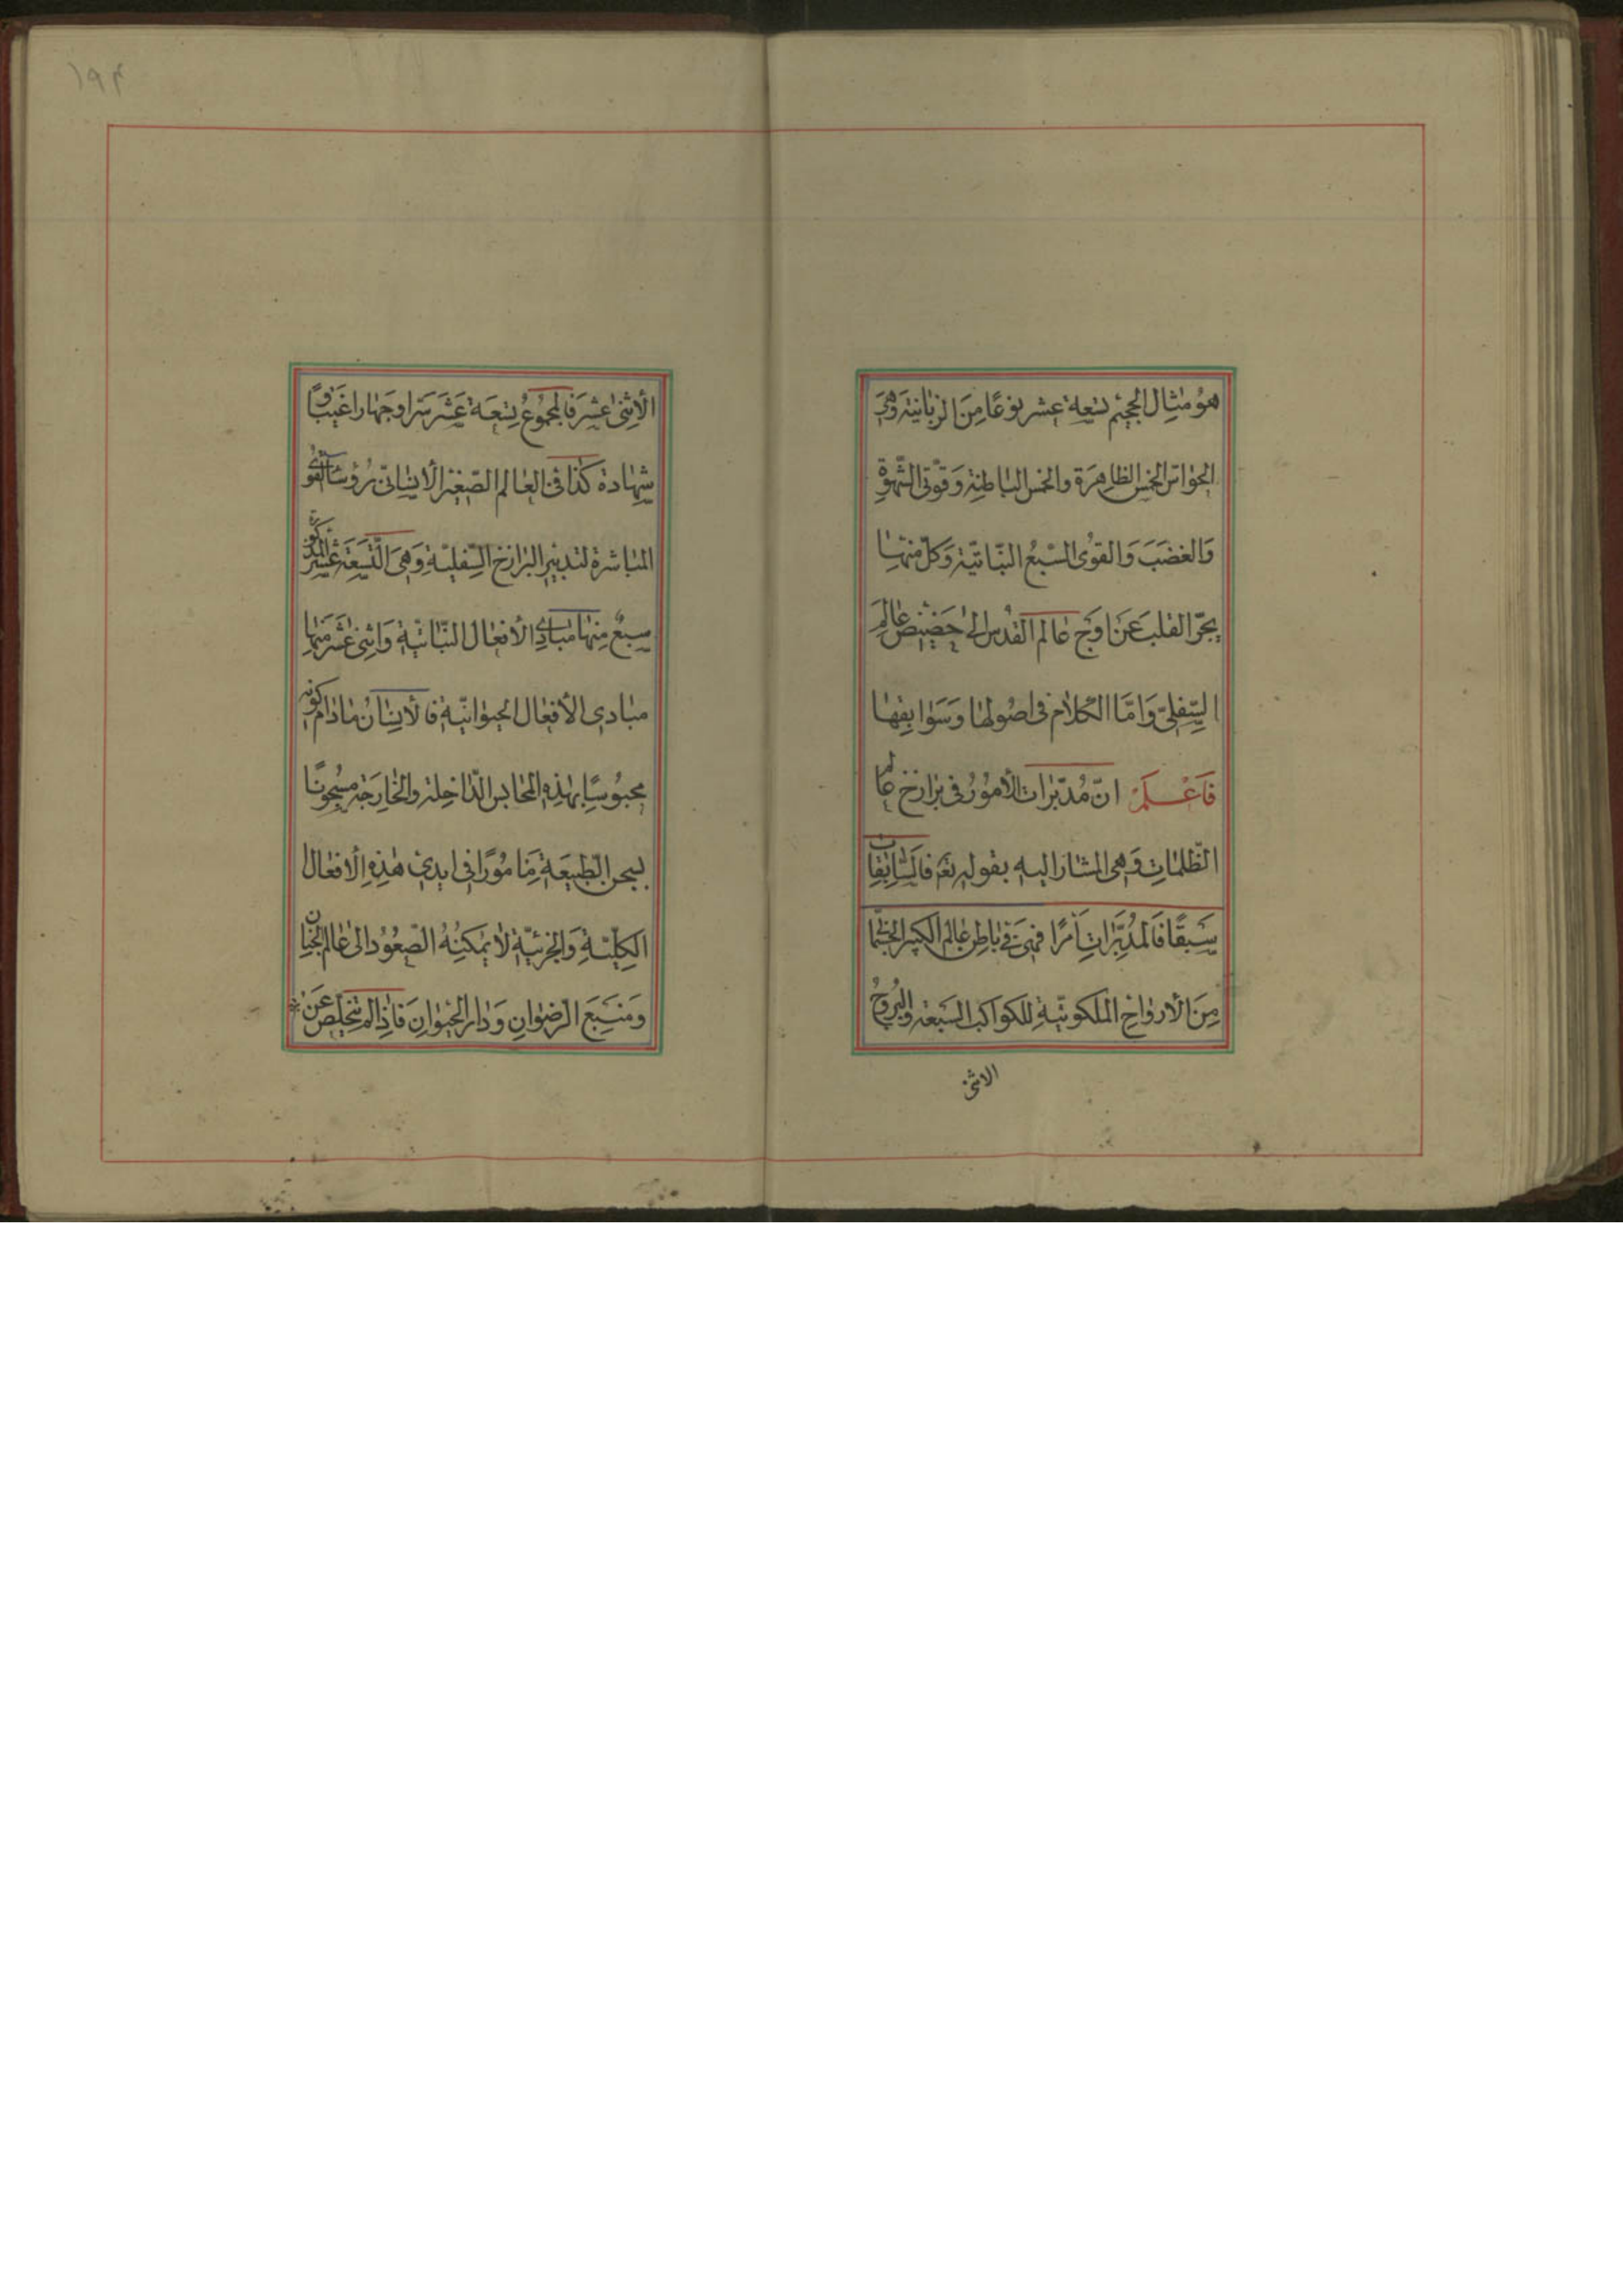 هو مثال الجحيم تسعة عشر نوعا من الزبانية وهي
الحواس الخمس الظاهرة والخمس الباطنة وقوتي الشهوة
والغضب والقوى السبع النباتية وكل منها
يجر القلب عن اوج عالم القدس الى حضيض عالم
السفلي واما الكلام في اصولها وسوابقها
فاعلم ان مدبرات الأمور في برازخ عالم
الظلمات وهي المشار اليه بقوله تع فالسابقات
سبقا فالمدبرات امرا فهي في باطن عالم الكبير الجسماني
من الأرواح الملكوتية للكواكب السبعة والبروج
الاثنى
الأثنى عشر فالمجموع تسعة عشر سرا وجهارا غيبا و
شهادة كذا في العالم الصغير الأنساني رؤساء القوى
المباشرة لتدبير البرازخ السفلية وهي التسعة عشر المذكورة
سبع منها مبادي الأفعال النباتية واثنى عشر منها
مبادي الأفعال الحيوانية فالأنسان مادام كونه
محبوسا بهذه المحابس الداخلة والخارجة مسجونا
بسجن الطبيعة مامورا في ايدي هذه الافعال
الكلية والجزئية لا يمكنه الصعود الى عالم الجنان
ومنبع الرضوان ودار الحيوان فاذا لم يتخلص عن
۱۹۴